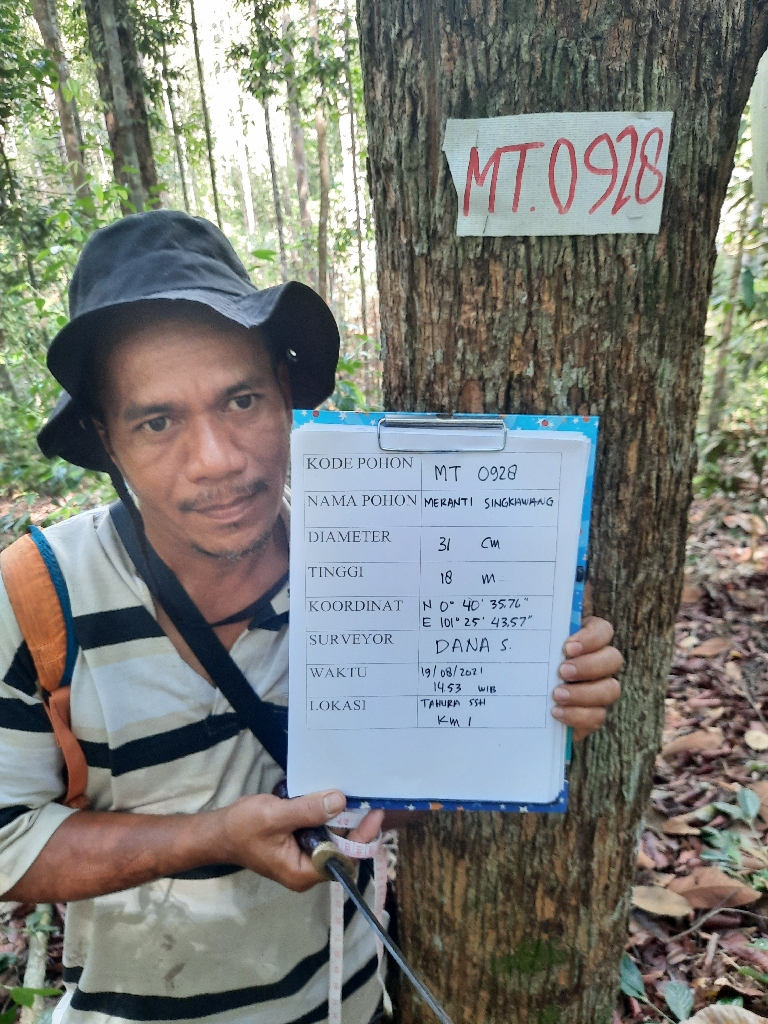 MT.0928
KODE POHON MT 0928
NAMA POHON MERANTI SINGKAWANG
DIAMETER 31 Cm
TINGGI 18 m
KOORDINAT N 0° 40' 35.76"
E 101° 25' 43.57"
SURVEYOR DANA S.
WAKTU 19/08/2021
14.53 WIB
LOKASI TAHURA SSH
KM 1